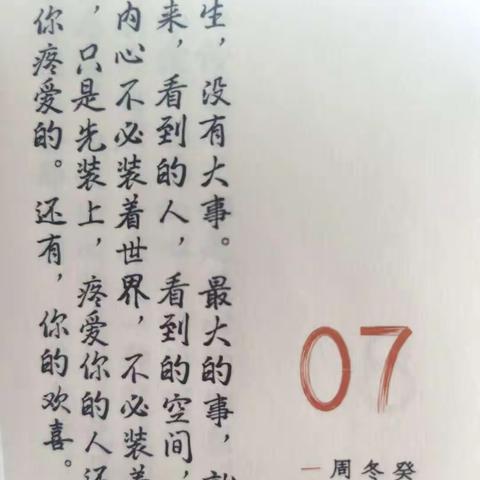 生，没有大事。最大的事，
来，看到的人，看到的空间，
内心不必装着世界，不必装着
，只是先装上，疼爱你的人还
你疼爱的。还有，你的欢喜。
07
癸
冬
周